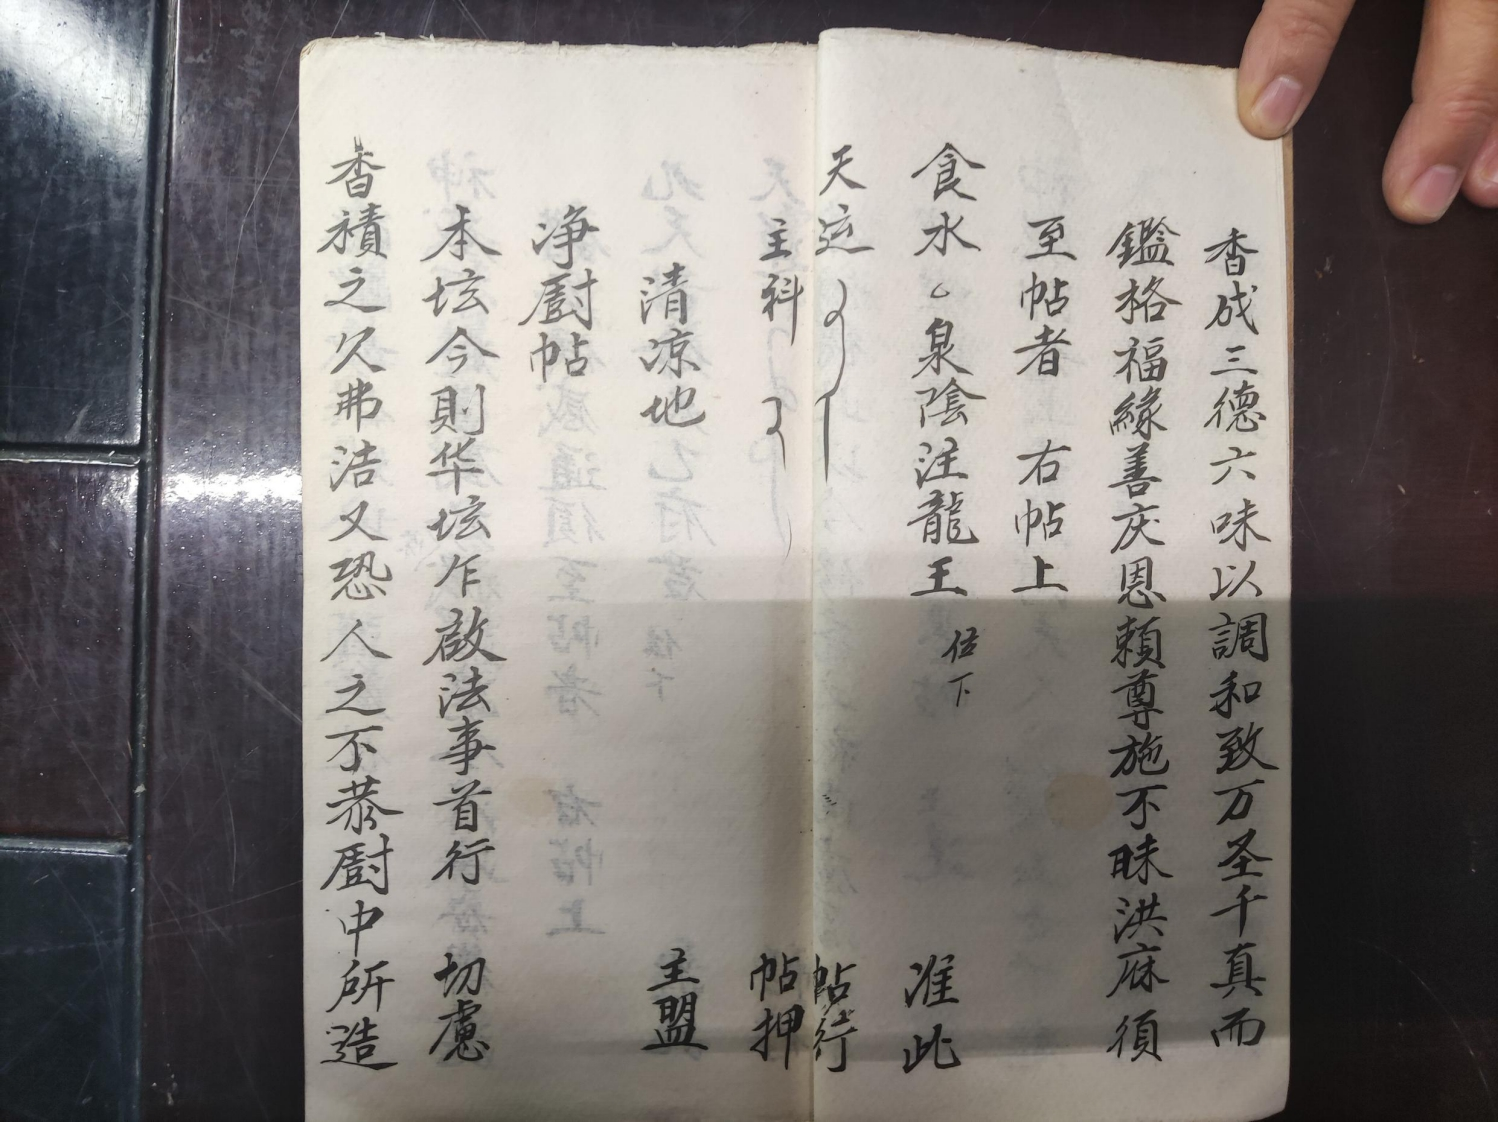 香成三德六味以調和致万圣千真而
鑑格福緣善庆恩賴尊施不昧洪庥須
至帖者 右帖上
食水〻泉陰注龍王 位下 准此
天运 帖行
主科 帖押
清凉地 主盟
净厨帖
本坛今則华坛乍啟法事首行 切慮
香積之久弗洁又恐人之不恭厨中所造